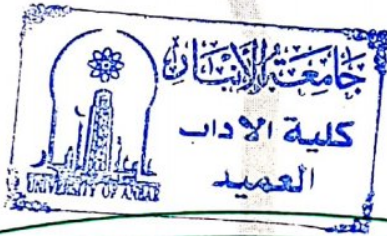 جامعة الأنبار
كلية الاداب
العميد
UNIVERSITY OF ANBAR